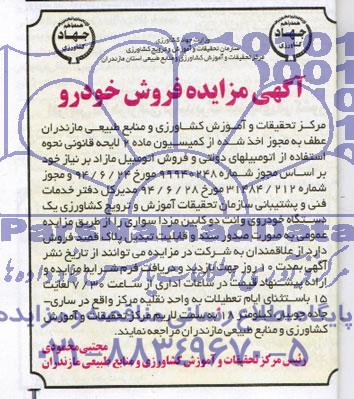 وزارت جهاد کشاورزی
سازمان تحقیقات و آموزش و ترویج کشاورزی
مرکز تحقیقات و آموزش کشاورزی و منابع طبیعی استان مازندران
جهاد
کشاورزی
جهاد
کشاورزی
آگهی مزایده فروش خودرو
مرکز تحقیقات و آموزش کشاورزی و منابع طبیعی مازندران
عطف به مجوز اخذ شده از کمیسیون ماده ۲ لایحه قانونی نحوه
استفاده از اتومبیلهای دولتی و فروش اتومبیل مازاد بر نیاز خود
بر اساس مجوز شماره ۹۹۹۴۰۲۴۸ مورخ ۹۴/۶/۲۴ و مجوز
شماره ۳۱۴۸۴/۲۱۲ مورخ ۹۴/۶/۲۸ مدیرکل دفتر خدمات
فنی و پشتیبانی سازمان تحقیقات آموزش و ترویج کشاورزی یک
دستگاه خودروی وانت دو کابین مزدا سواری را از طریق مزایده
عمومی به صورت صدور سند و قابلیت تبدیل پلاک قصد فروش
دارد از علاقمندان به شرکت در مزایده می توانند از تاریخ نشر
آگهی بمدت ۱۰ روز جهت بازدید و دریافت فرم شرایط مزایده و
ارائه پیشنهاد قیمت در ساعات اداری از ساعت ۷/۳۰ لغایت
۱۵ باستثنای ایام تعطیلات به واحد نقلیه مرکز واقع در ساری-
جاده جویبار کیلومتر ۱۸ به سمت لاریم مرکز تحقیقات و آموزش
کشاورزی و منابع طبیعی مازندران مراجعه نمایند.
مجتبی محمودی
رئیس مرکز تحقیقات و آموزش کشاورزی و منابع طبیعی مازندران
۰۲۱-۸۸۳۴۹۶۷۰-۵